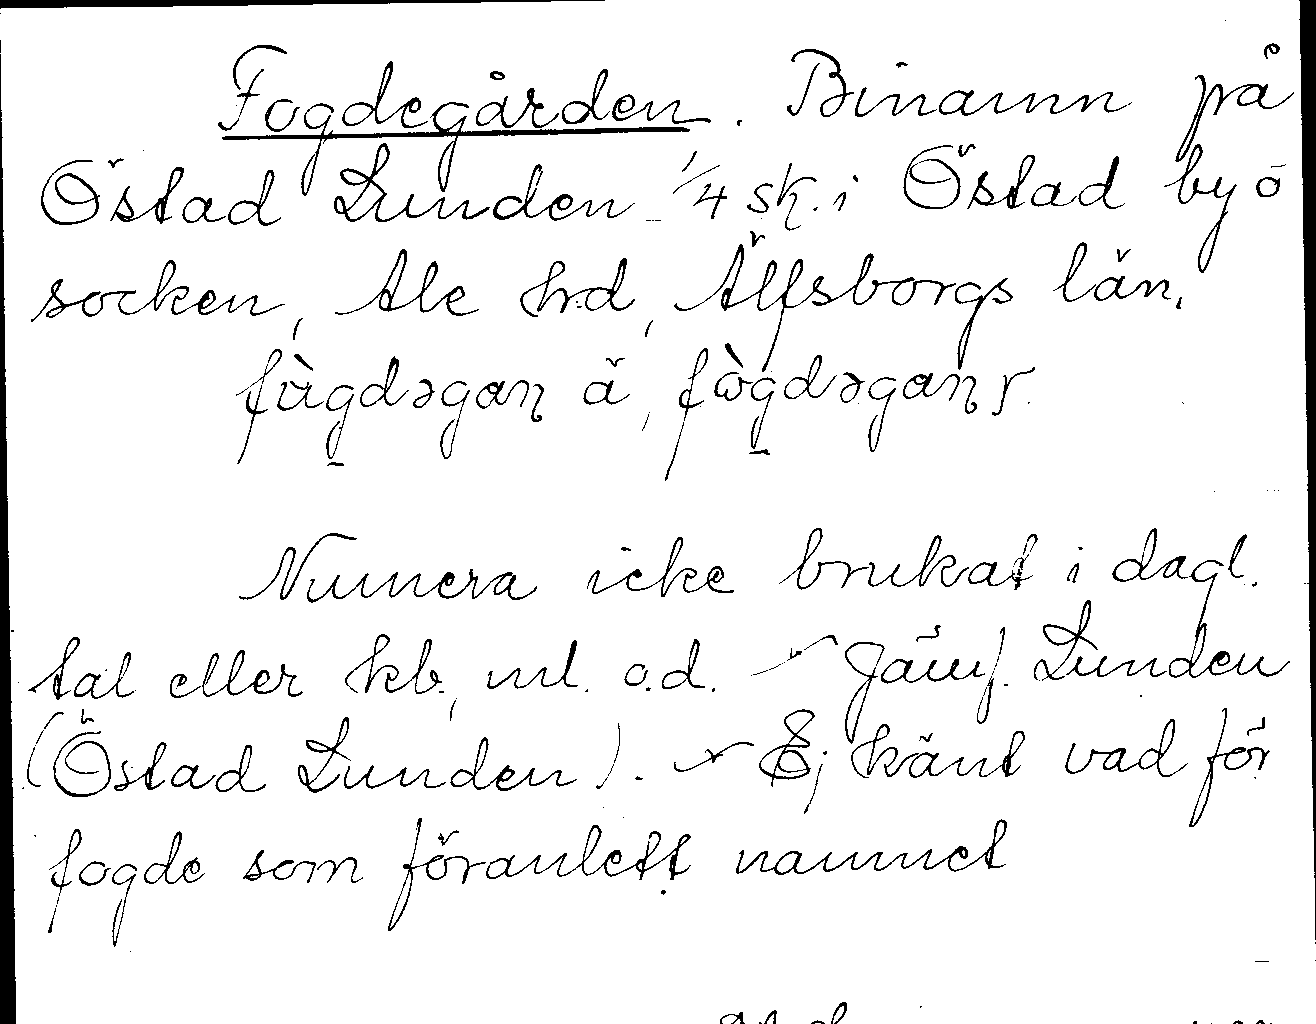 Fogdegården. Binamn på
Östad Lunden 1/4 sk. i Östad by o
socken, Ale hrd, Älfsborgs län.
fùgdəgaɳ ä, fògdəgaɳ ɼ.
Numera icke brukat i dagl.
tal eller kb, ml. o.d. - Jämf. Lunden
(Östad Lunden). - Ej känt vad för
fogde som föranlett namnet